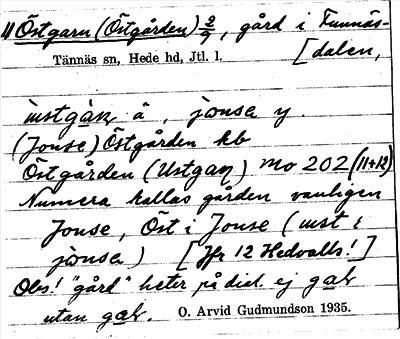 1) Östgarn (Östgården) 2/9, gård i Funnäs-
[dalen,
Tännäs sn, Hede hd, Jtl. l.
à, jonse y.
(Jonse) Östgården kb
Östgården (Ustgan) Mo 202 (11+12)
Numera kallas gården vanligen
Jonse, Öst i Jonse (
) [Jfr 12 Hedvalls!]
Obs! "gård" heter på dial. ej
utan
O. Arvid Gudmundson 1935.